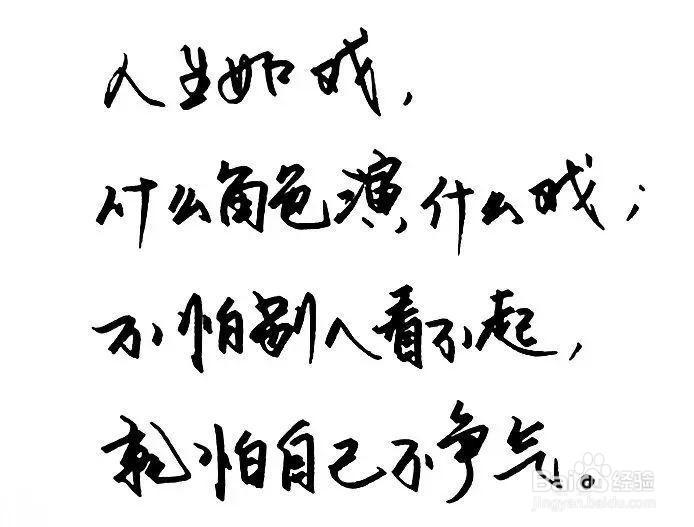 人生如戏，
什么角色演什么戏；
不怕别人看不起，
就怕自己不争气。
Baidu经验
jingyan.baidu.com